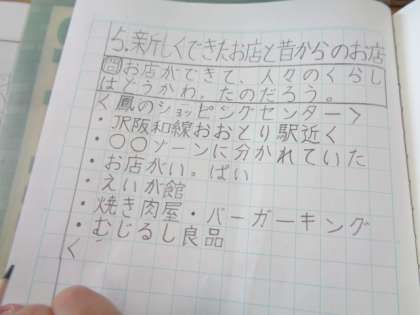 5.新しくできたお店と昔からのお店
問お店ができて、人々のくらし
はどうかわったのだろう。
<鳳のショッピングセンター>
・JR阪和線おおとり駅近く
・○○ゾーンに分かれていた
・お店がいっぱい
・えいが館
・焼き肉屋・バーガーキング
・むじるし良品
<